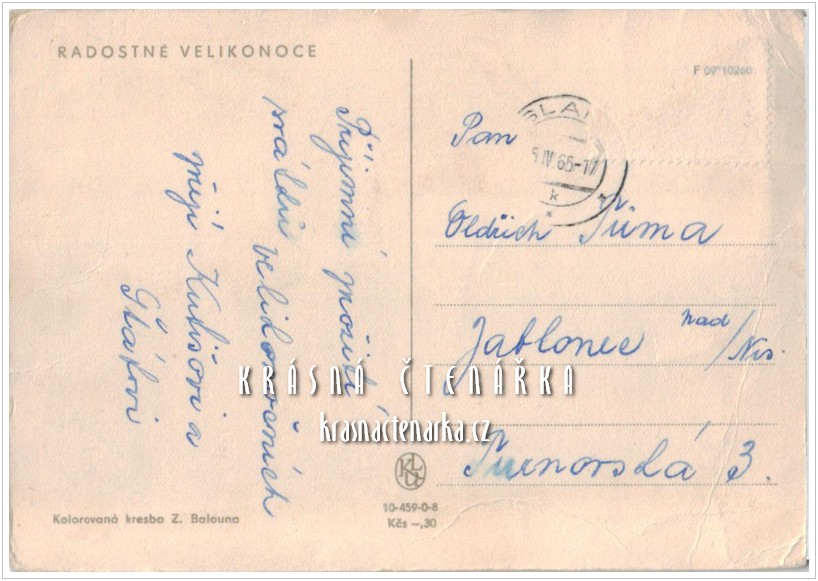 RADOSTNÉ VELIKONOCE
F 09*10260
Příjemné prožití
svátků velikonočních
přejí Kubišovi a
SLA
5 IV 65-17
k
Pan
Oldřich Tůma
Jablonec nad/Nis.
Turnovská 3.
KRÁSNÁ ČTENÁŘKA
krasnactenarka.cz
10-459-0-8
Kčs -,30
Kolorovaná kresba Z. Balouna